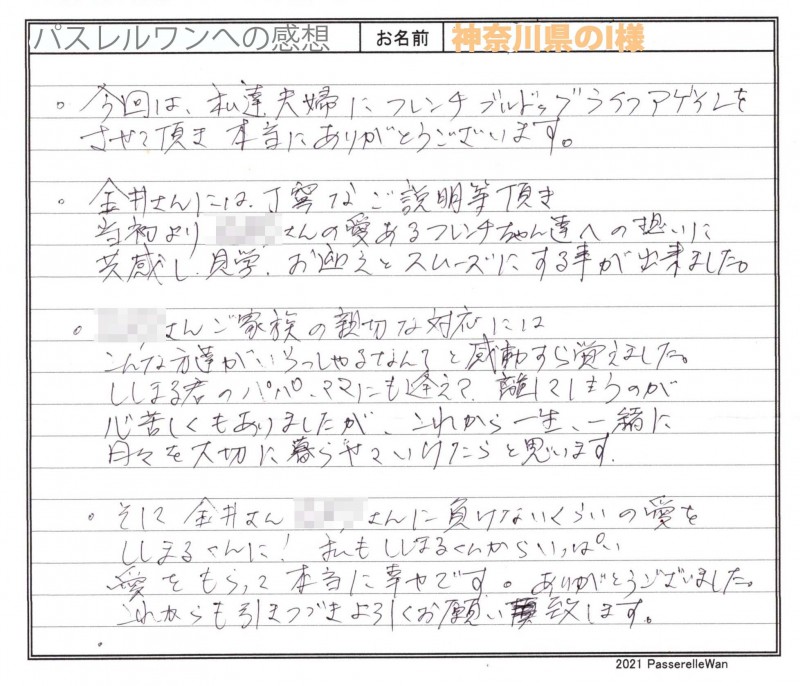 パスレルワンへの感想 お名前 神奈川県のI様
。今回は、私達夫婦にフレンチブルドッグライフアゲインを
させて頂き本当にありがとうございます。
。金井さんには、丁寧なご説明等頂き
当初より さんの愛あるフレンチちゃん達への想いに
共感し、見学、お迎えとスムーズにする事が出来ました。
。 さんご家族の親切な対応には
こんな方達がいらっしゃるなんてと感動すら覚えました。
ししまる君のパパ、ママにも逢えて、離してしまうのが
心苦しくもありましたが、これから一生、一緒に
月々を大切に暮らせていけたらと思います。
。そして金井さん さんに負けないくらいの愛を
ししまるくんに! 私もししまるくんからいっぱい
愛をもらって本当に幸せです。ありがとうございました。
これからも引きつづきよろしくお願い致します。
2021 PasserelleWan